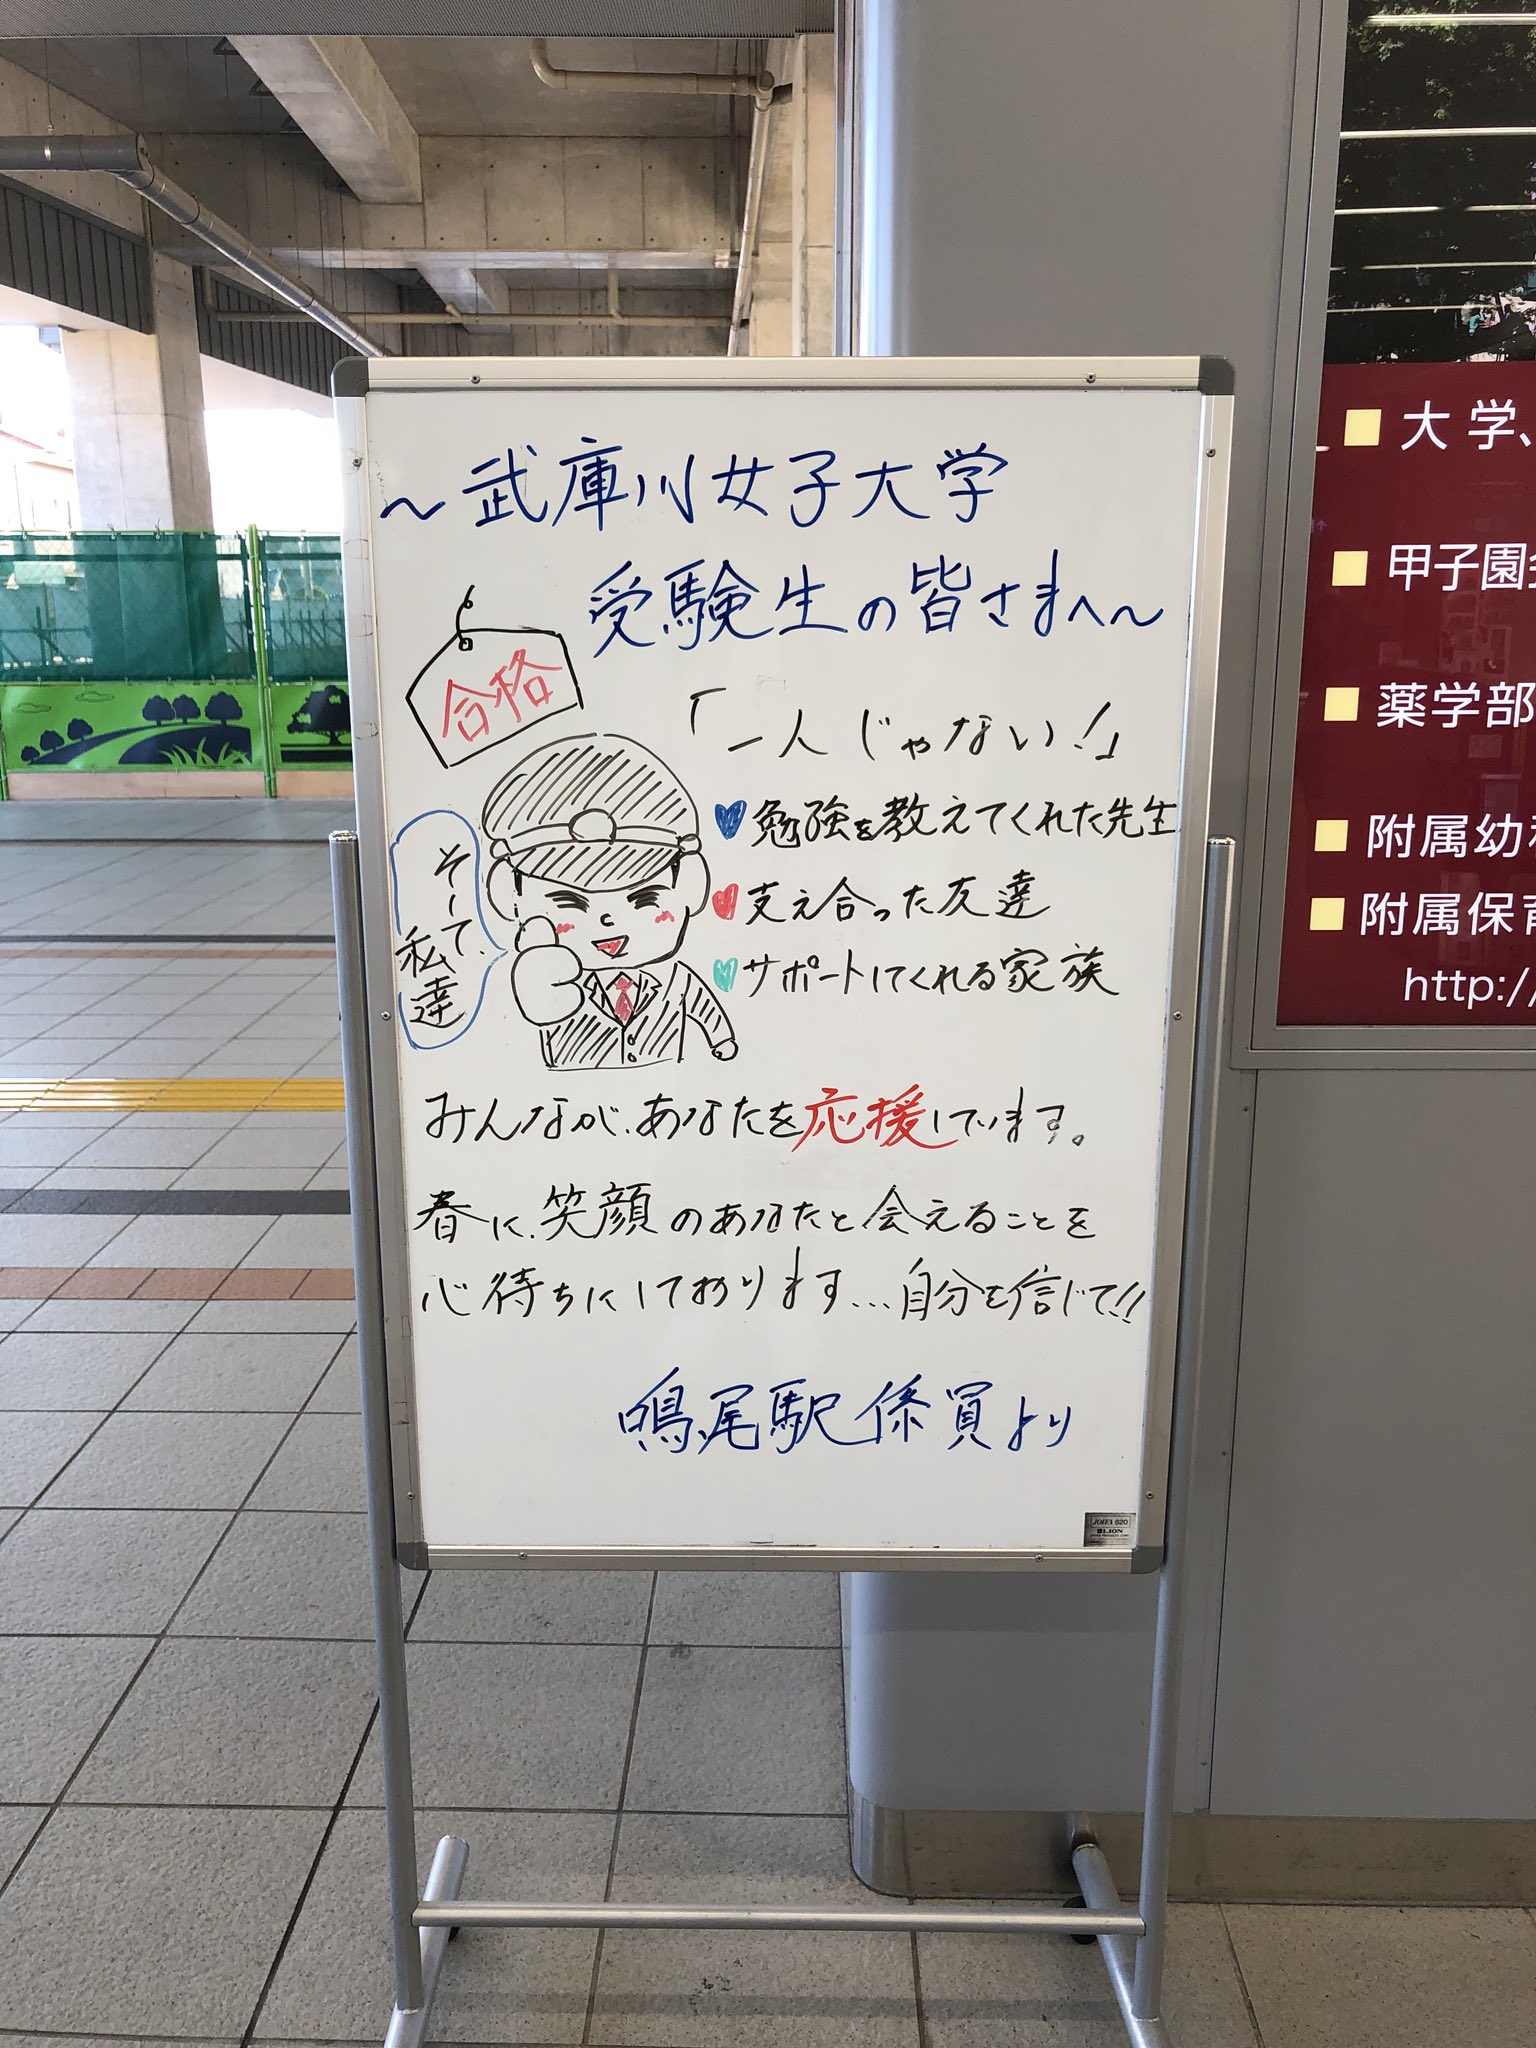 ～武庫川女子大学
受験生の皆さまへ～
合格
「一人じゃない！」
勉強を教えてくれた先生
支え合った友達
サポートしてくれる家族
そして、
私達
みんなが、あなたを応援しています。
春に、笑顔のあなたと会えることを
心待ちにしております…自分を信じて!!
鳴尾駅係員より
JOIFA 620
LION
大学、
甲子園
薬学部
附属幼
附属保育
http://